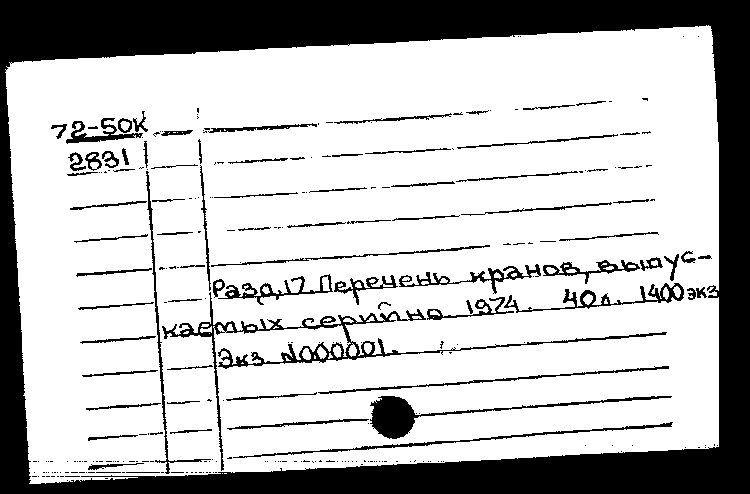 72-50К
2831
Разд.17. Перечень кранов, выпус-
каемых серийно 1974. 40л. 1400экз
Экз. №000001.